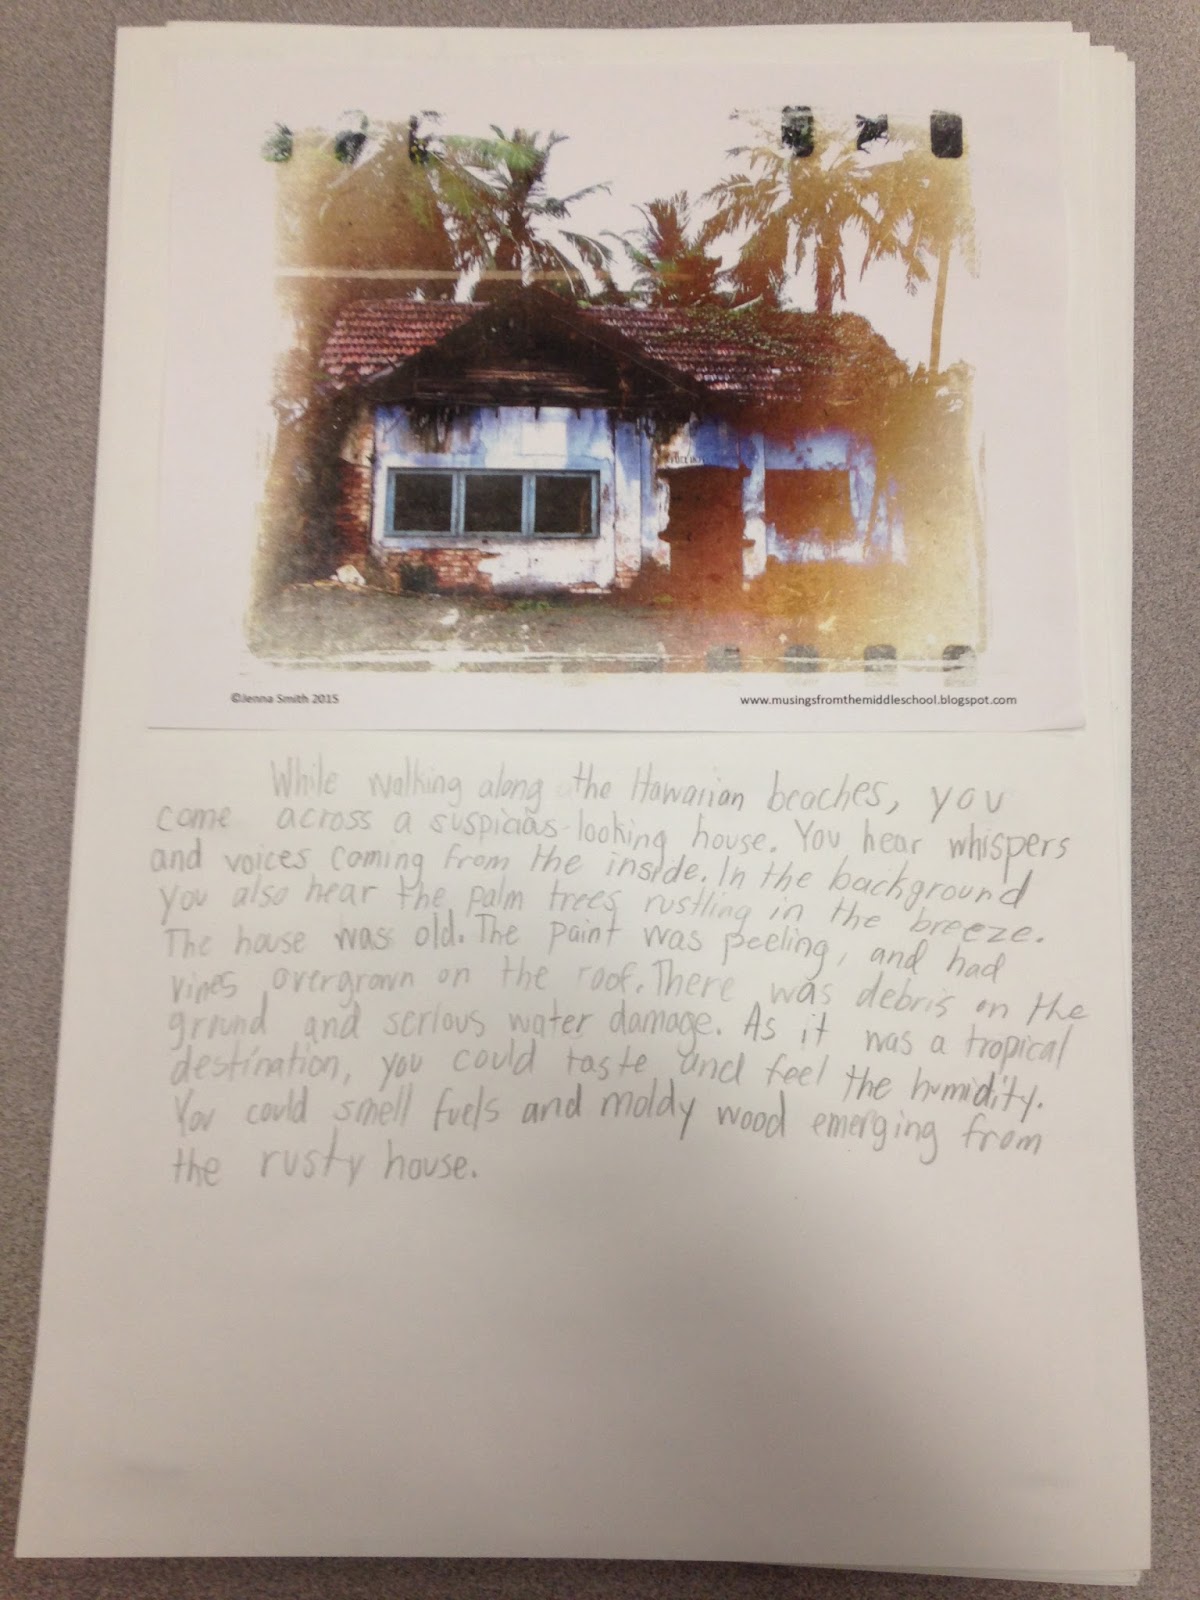 ©Jenna Smith 2015
www.musingsfromthemiddleschool.blogspot.com
While walking along the Hawarian beaches, you
come across a suspicious-looking house. You hear whispers
and voices coming from the inside. In the background
you also hear the palm trees rustling in the breeze.
The house was old. The paint was peeling, and had
vines overgrown on the roof. There was debris on the
ground and serious water damage. As it was a tropical
destination, you could taste and feel the humidity.
You could smell fuels and moldy wood emerging from
the rusty house.